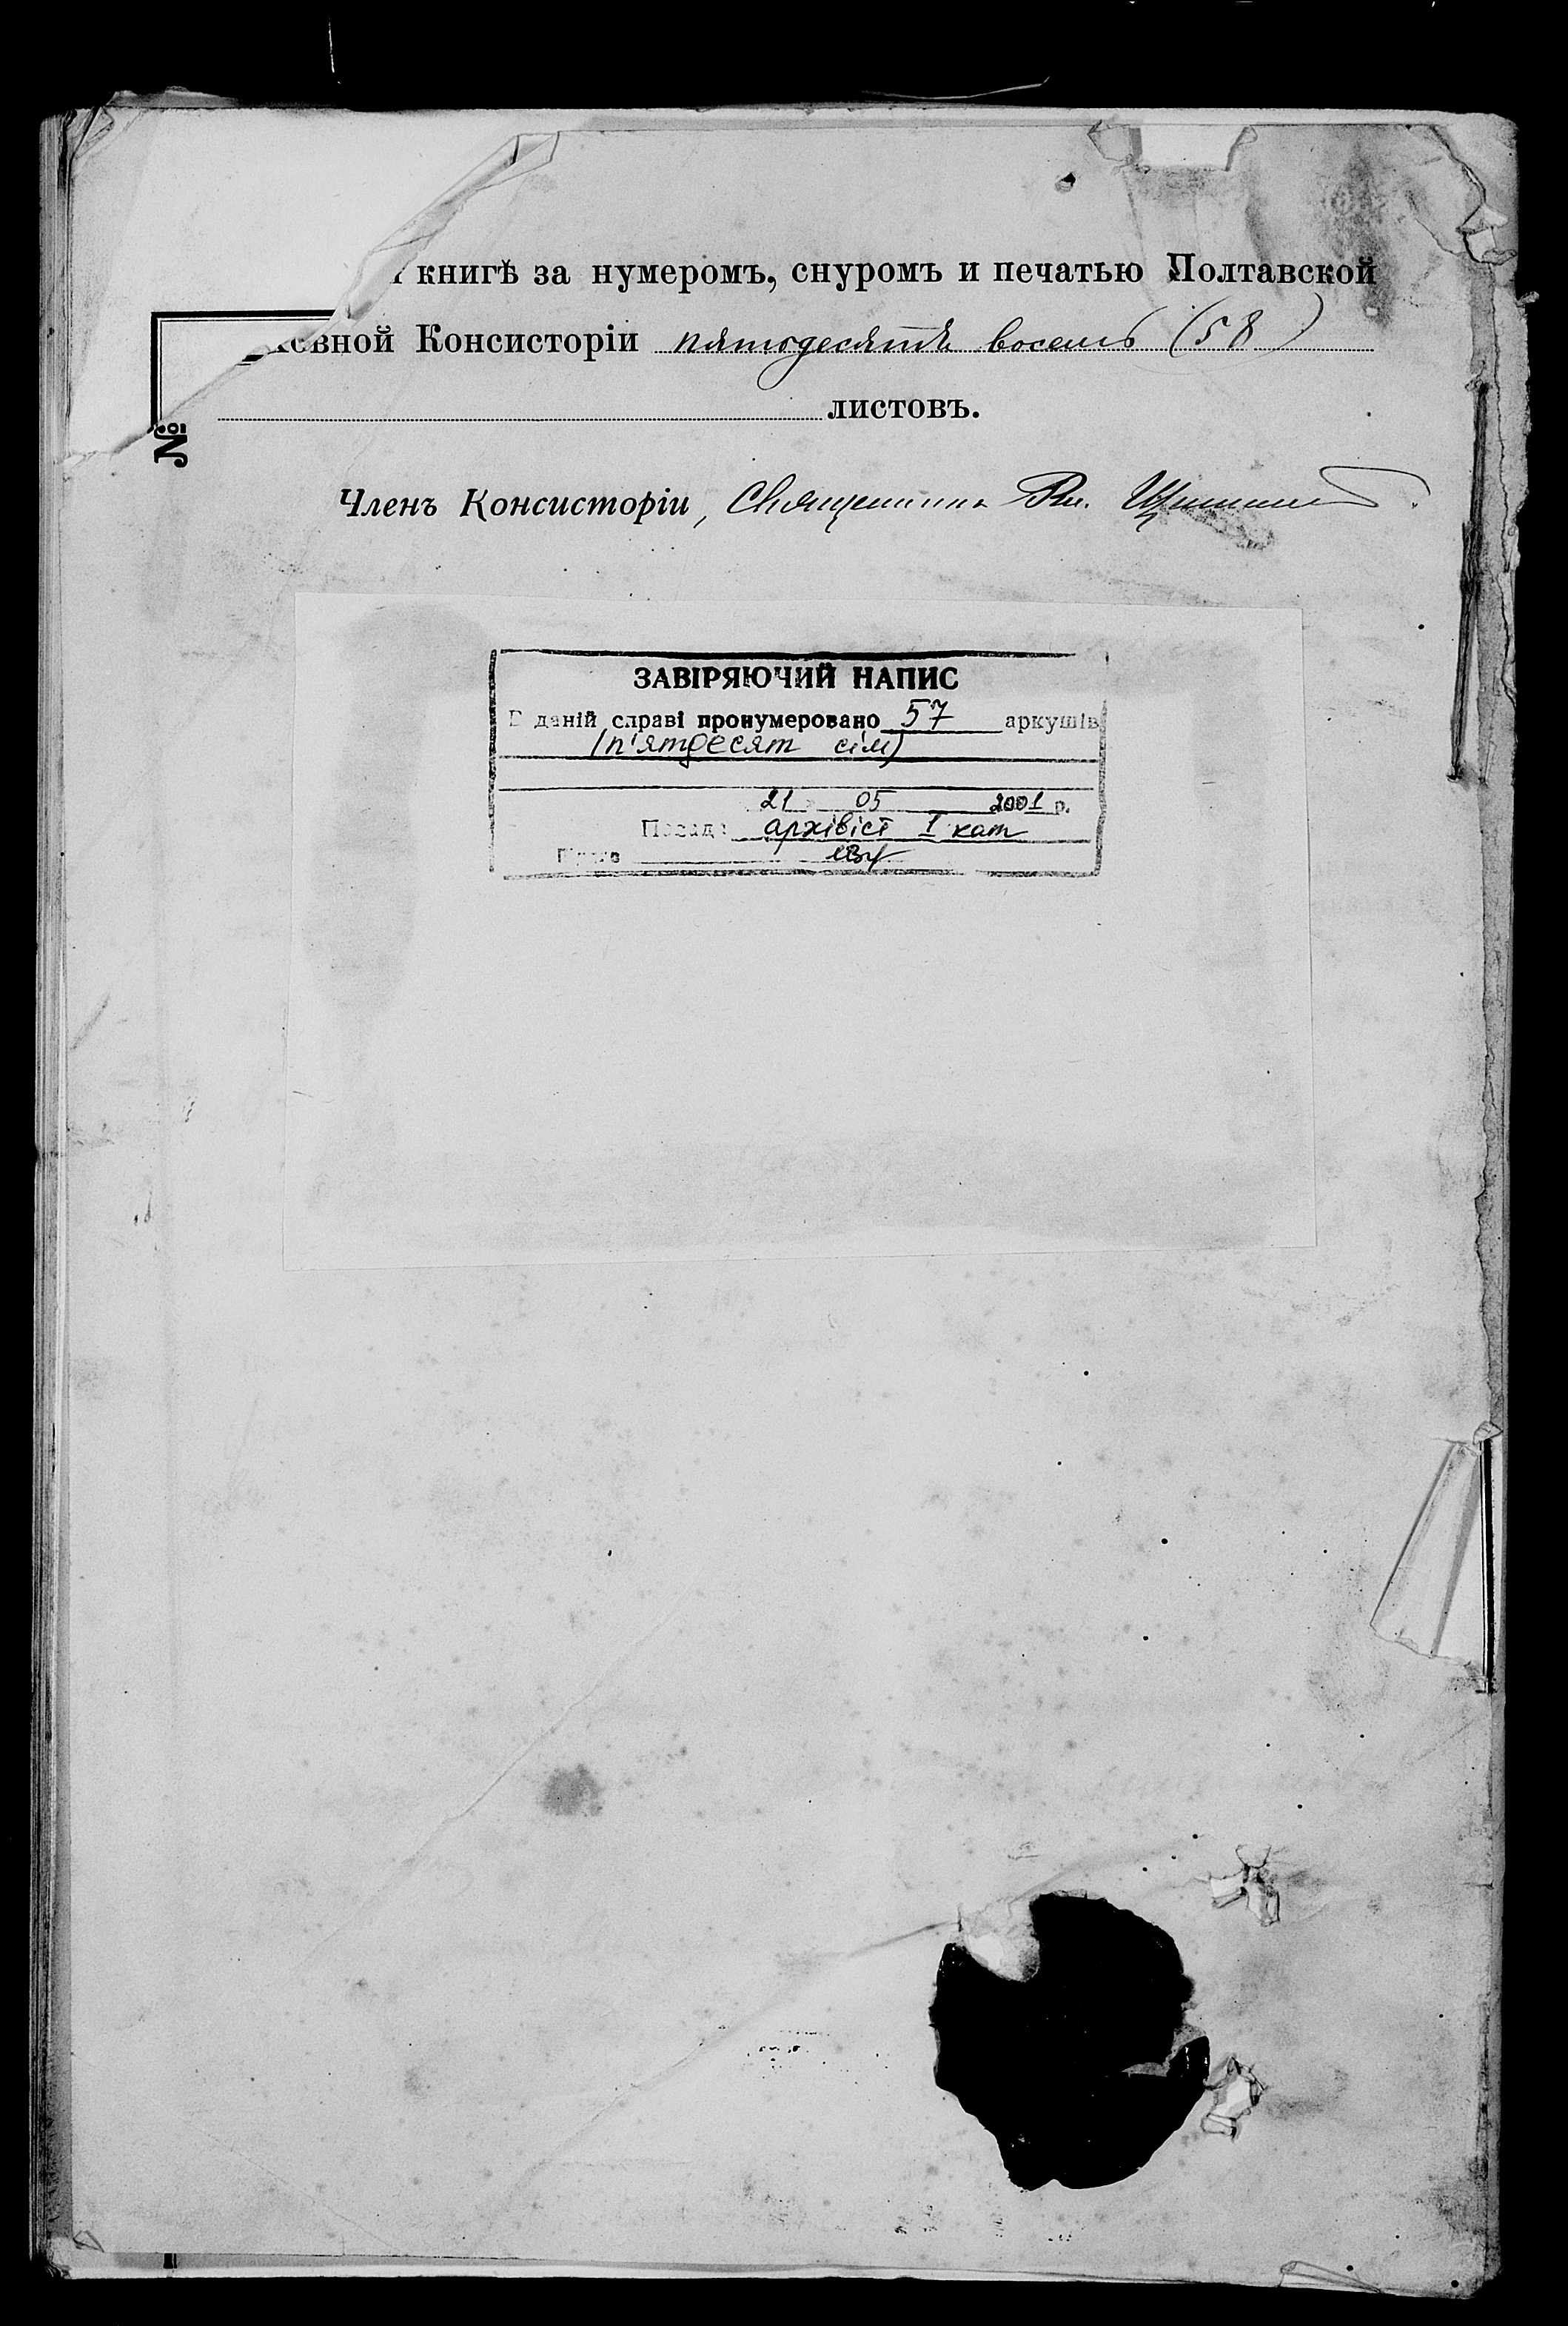 книгѣ за нумеромъ, снуромъ и печатью Полтавской
вной Консисторіи пятодесятъ восемь (58)
листовъ.
№
Членъ Консисторіи, Священникъ
ЗАВІРЯЮЧИЙ НАПИС
В даній справі пронумеровано 57 аркушів
(п'ятдесят сім)
21 05 2001 р.
Посада архівіст I кат
Підпис